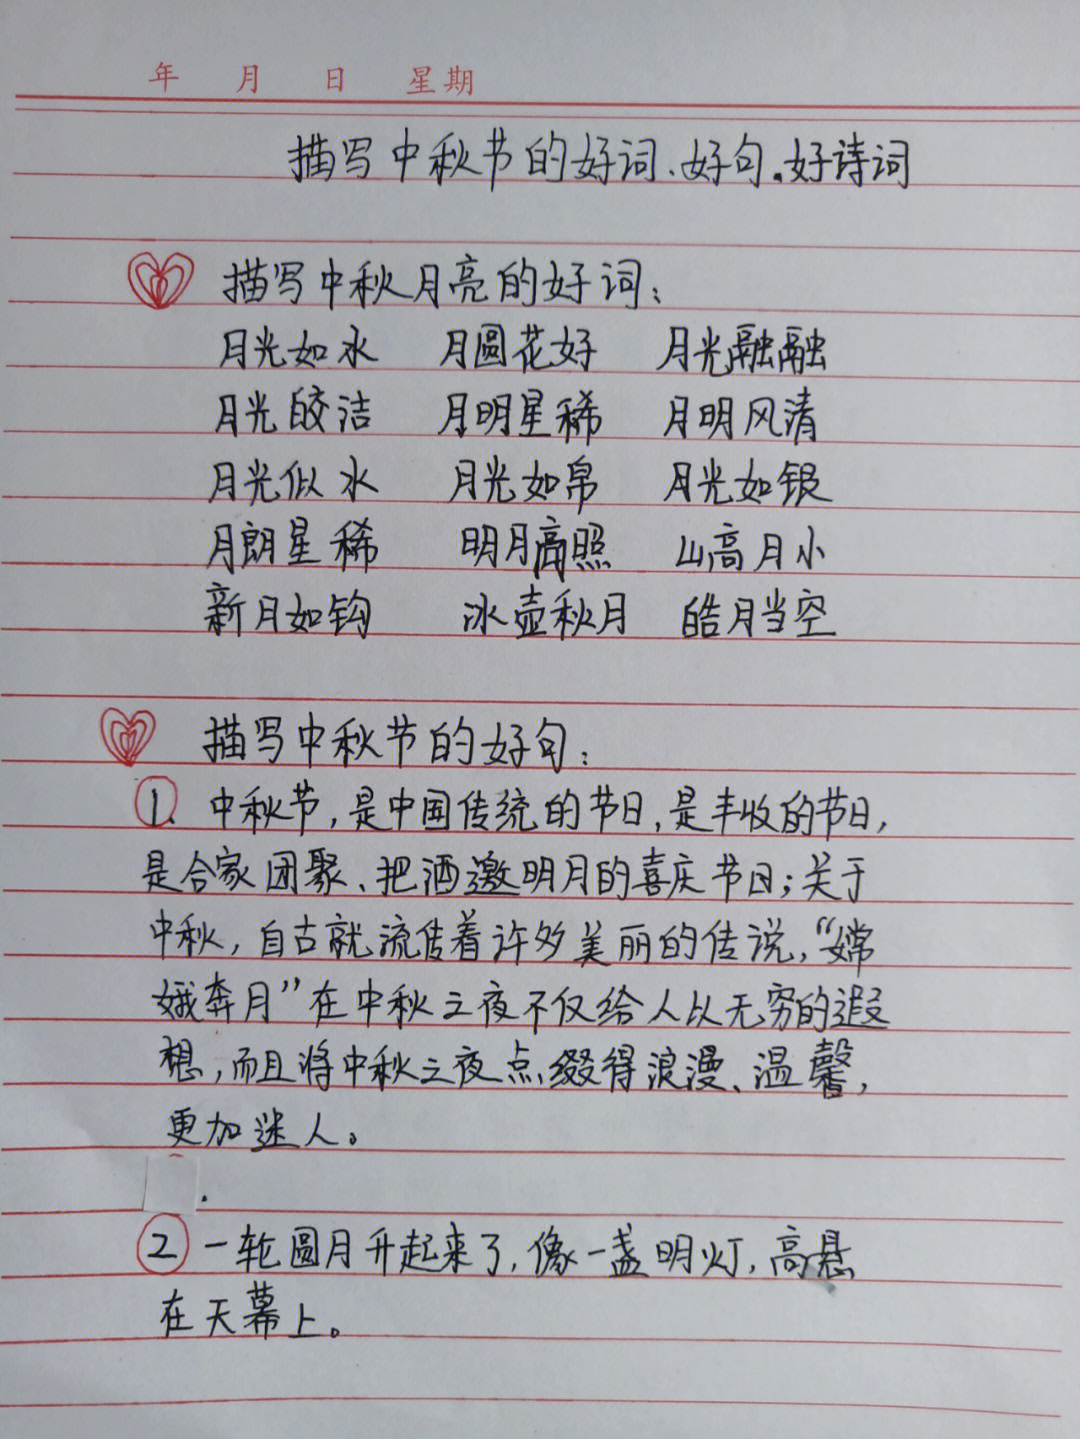 年 月 日 星期
描写中秋节的好词、好句。好诗词
描写中秋月亮的好词：
月光如水 月圆花好 月光融融
月光皎洁 月明星稀 月明风清
月光似水 月光如帛 月光如银
月朗星稀 明月高照 山高月小
新月如钩 冰壶秋月 皓月当空
描写中秋节的好句：
1. 中秋节，是中国传统的节日，是丰收的节日，
是合家团聚、把酒邀明月的喜庆节日；关于
中秋，自古就流传着许多美丽的传说，“嫦
娥奔月”在中秋之夜不仅给人以无穷的遐
想，而且将中秋之夜点缀得浪漫、温馨，
更加迷人。
2 一轮圆月升起来了，像一盏明灯，高悬
在天幕上。